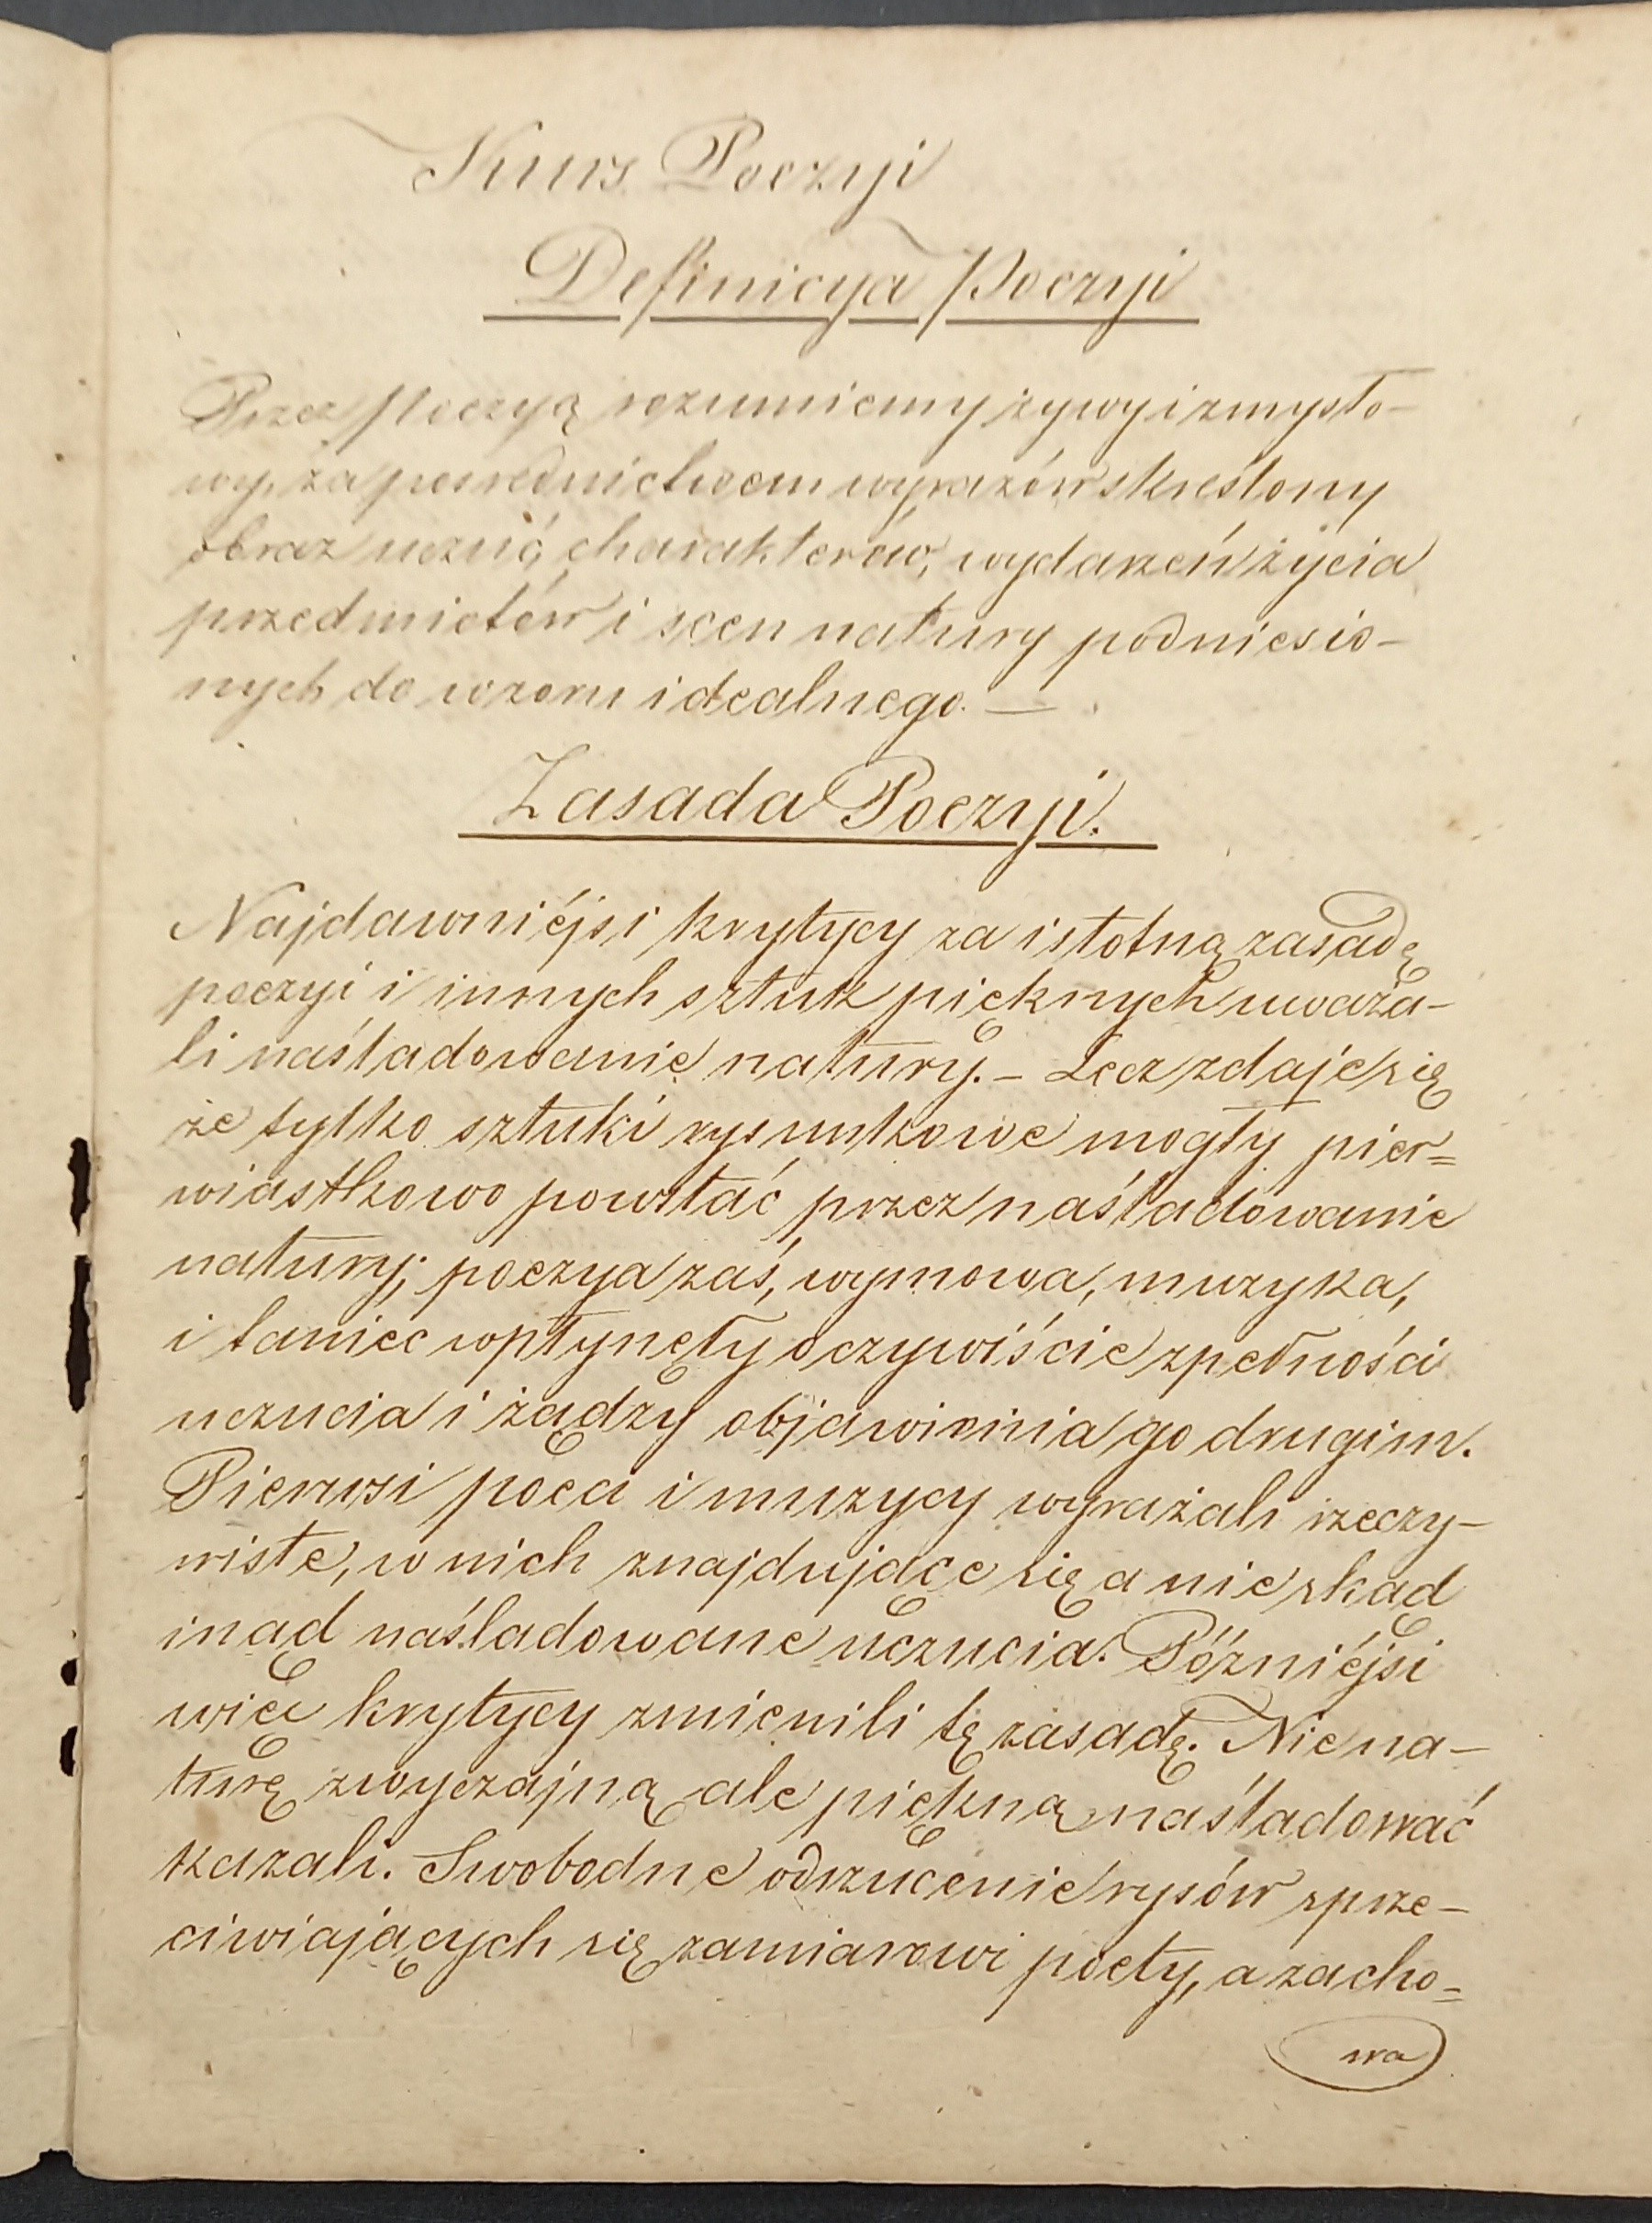 Kurs Poezyi
Definicya Poezyi
Przez Poezyą rozumiemy żywy i zmysło-
wy, za posrednictwem wyrazów skreślony
obraz uczuć, charakterów, wydarzeń życia
przedmiotów i scen natury podniesio-
nych do wzoru idealnego. —
Zasada Poezyi.
Najdawniéjsi krytycy za istotną zasadę
poezyi i innych sztuk pięknych uważa-
li naśladowanie natury. – Lecz zdaje się
że tylko sztuki rysunkowe mogły pier=
wiastkowo powstać przez naśladowanie
natury; poezya zaś, wymowa, muzyka,
i taniec wpłynęły oczywiście zpełności
uczucia i żądzy objawienia go drugim.
Pierwsi poeci i muzycy wyrażali rzeczy-
wiste, w nich znajdujące się a nie skąd
inąd naśladowane uczucia. Późniéjsi
więc krytycy zmienili tę zasadę. Nie na-
turę zwyczajną ale piękną naśladować
kazali. Swobodne odrzucenie rysów sprze-
ciwiających się zamiarowi poety, a zacho=
wa